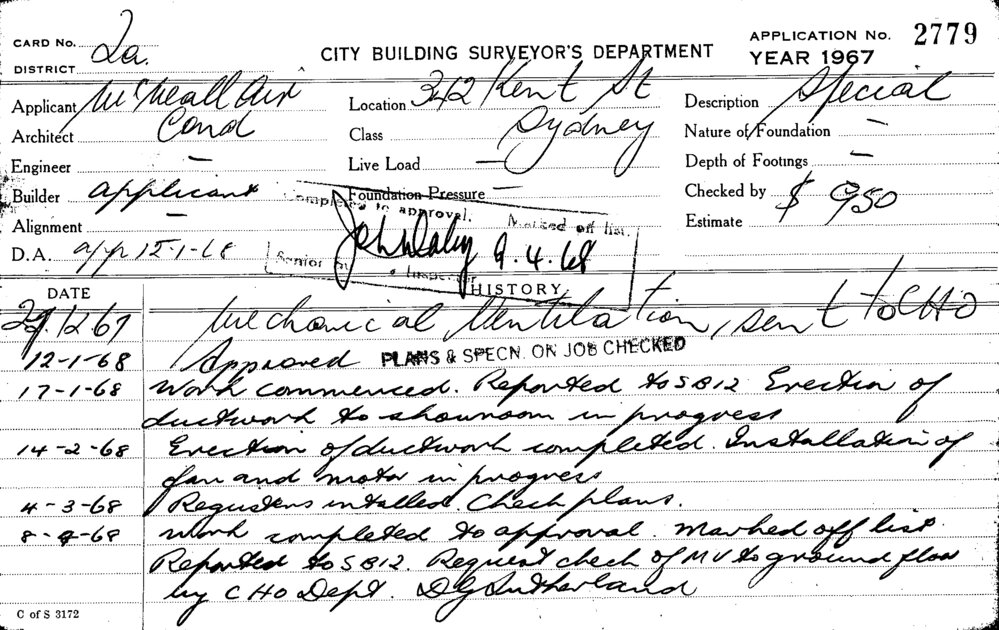 CARD No. 2a.
DISTRICT
CITY BUILDING SURVEYOR'S DEPARTMENT
APPLICATION No. 2779
YEAR 1967
Applicant McNeall Air
Location 342 Kent St
Description Special
Architect Cond
Class Sydney
Nature of Foundation —
Engineer —
Live Load —
Depth of Footings —
Builder applicant
Foundation Pressure —
Checked by
Alignment —
Estimate $ 950
D.A. app 15-1-68
Completed to approval. Marked off list.
9.4.68
Senior Inspector
DATE
HISTORY
12.67 Mechanical Ventilation, sent to CHO
12-1-68 Approved PLANS & SPECN. ON JOB CHECKED
17-1-68 Work commenced. Reported to SB12 Erection of
ductwork to showroom in progress
14-2-68 Erection of ductwork completed. Installation of
fan and motor in progress
4-3-68 Registers intalled. Check plans.
8-4-68 Work completed to approval. Marked off list.
Reported to SB12. Request check of MV to ground floor
by CHO Dept. DGSutherland
C of S 3172